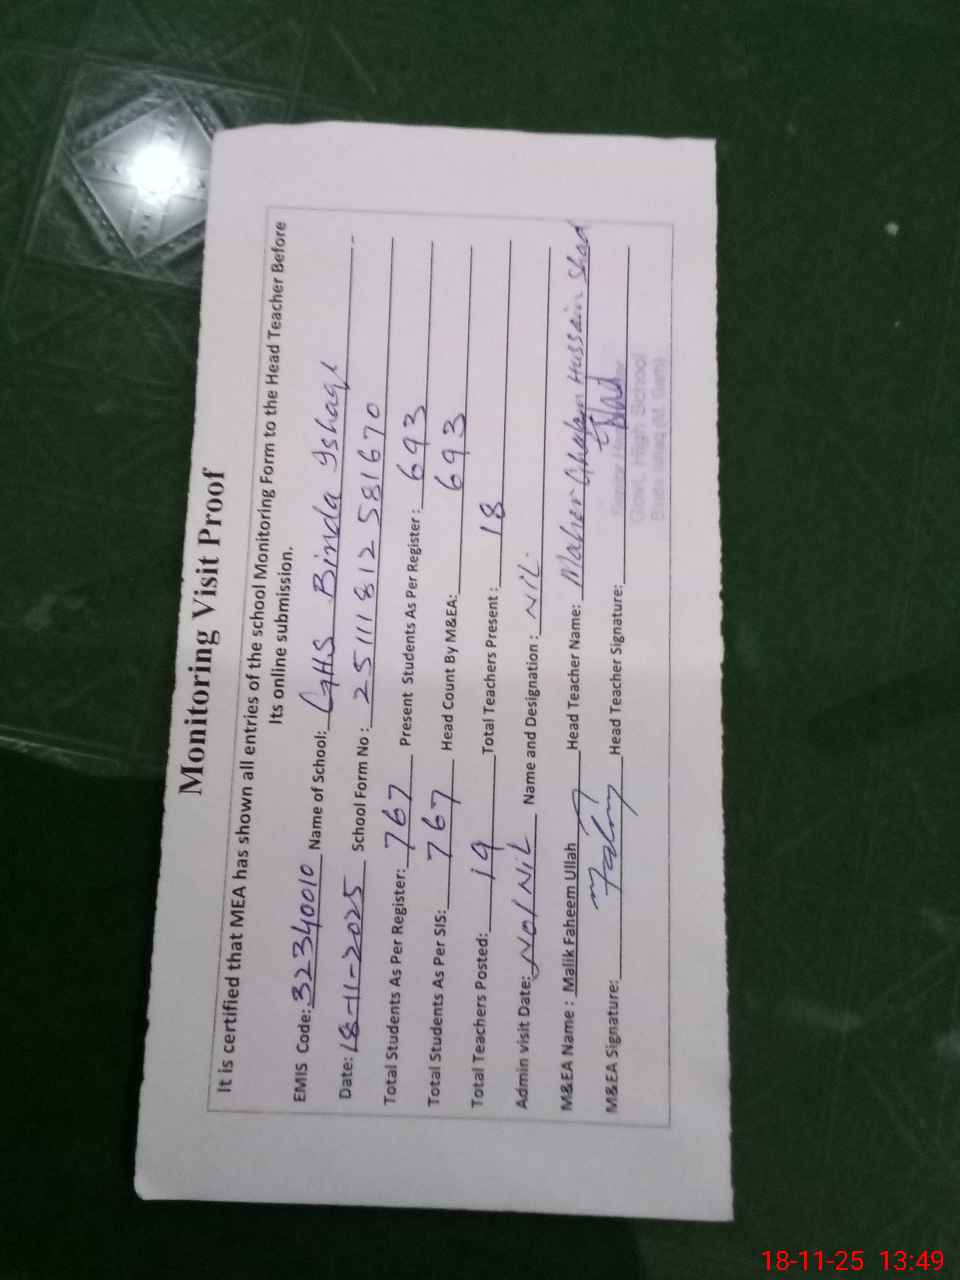 Monitoring Visit Proof
It is certified that MEA has shown all entries of the school Monitoring Form to the Head Teacher Before
Its online submission.
EMIS Code: 32340010 Name of School: GHS Binda Ishaq
Date: 18-11-2025 School Form No : 2511181258 1670
Total Students As Per Register: 767 Present Students As Per Register: 693
Total Students As Per SIS: 767 Head Count By M&EA: 693
Total Teachers Posted: 19 Total Teachers Present : 18
Admin visit Date: Nil Name and Designation : NIL.
M&EA Name : Malik Faheem Ullah Head Teacher Name: Maher Ghulam Hussain Shad
M&EA Signature: Head Teacher Signature:
Govt. High School
18-11-25 13:49